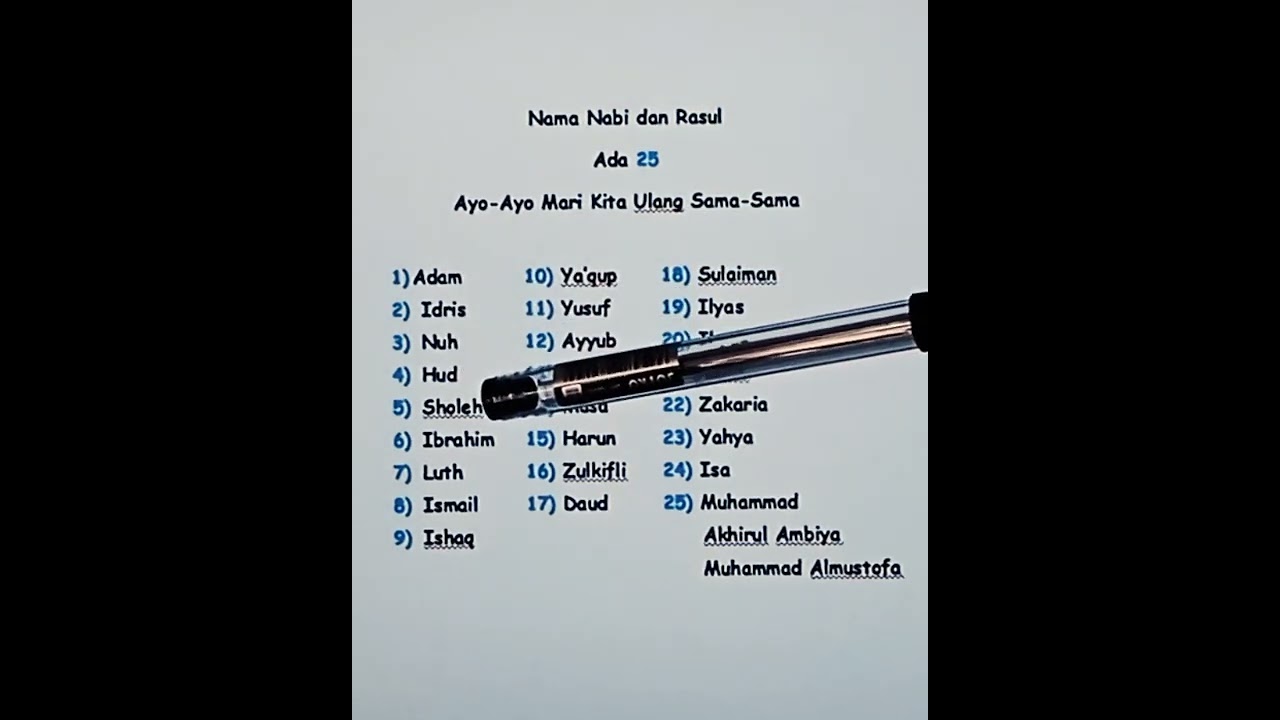 Nama Nabi dan Rasul
Ada 25
Ayo-Ayo Mari Kita Ulang Sama-Sama
1) Adam
2) Idris
3) Nuh
4) Hud
5) Sholeh
6) Ibrahim
7) Luth
8) Ismail
9) Ishaq
10) Ya'qup
11) Yusuf
12) Ayyub
15) Harun
16) Zulkifli
17) Daud
18) Sulaiman
19) Ilyas
20)
22) Zakaria
23) Yahya
24) Isa
25) Muhammad
Akhirul Ambiya
Muhammad Almustofa